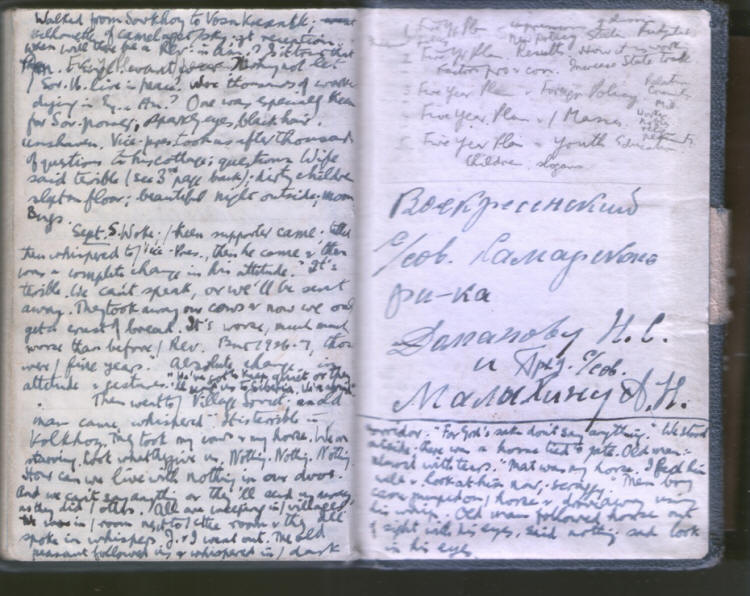 Walked from Sovkhoz to
silhouette of camel against sky; got reception;
when will there be a Rev. in Am.?
live in peace. Were thousands of workers
dying in Eng. & Am.? One was especially keen
for Sov. power, sparky eyes, black hair,
unshaven. Vice-pres. took us after thousands
of questions to his cottage; questions. Wife
said terrible (see 3rd page back); dirty children
slept on floor; beautiful night outside; moon
Bugs.
Sept. 5. Woke. / keen supporter came; little
then whispered to / Vice-Pres., then he came & there
was a complete change in his attitude. "It's
terrible. We can't speak, or we'll be sent
away. They took away our cows & now we only
get a crust of bread. It's worse, much much
worse than before / Rev. But 1926-7, those
were / fine years." Absolute change in
attitude & gestures. "We've got to keep quiet or they
'll send us to Siberia.
Then went to / Village Soviet. an old
man came, whispered "It is terrible in
Kolkhoz. They took my cows & my horse. We are
starving. Look what they give us. Nothing. Nothing. Nothing.
How can we live with nothing in our dvor.
And we can't say anything or they'll send us away
as they did / others. All are weeping in / villages
We were in / room next to / other room & they all
spoke in whispers. J. & I went out. The old
peasant followed us & whispered in / dark
1 Five Yr Plan
New Policy State Budget
2 Five Yr Plan Results How it is work
Factors pro & con. Increase State trade
3 Five Year Plan & Foreign Policy Relation
4 Five Year Plan & / Masses.
5 Five Year Plan & Youth Education
Children. slogans
Воскресенский
с/сов. Самарского
ри-ка
Дапапову Н. С.
и Пред. с/сов.
Малахину А. Н.
corridor. "For God's sake don't say anything." We stood
outside; there was a horse tied to gate. Old man
almost with tears. "That was my horse. I fed him
well & look at him now, scraggy." Then boy
came jumped on / horse & drove away using
his whip. Old man followed horse out
of sight with his eyes. Said nothing sad look
in his eyes